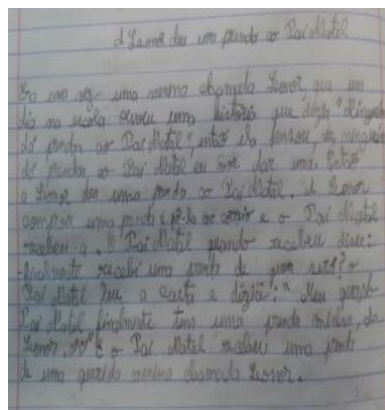 A Leonor deu uma prenda ao Pai Natal
Era uma vez uma menina chamada Leonor, que um
dia na escola ouviu uma história que dizia "Ninguém
dá prendas ao Pai Natal", então ela pensou, se ninguém
dá prendas, ao Pai Natal eu vou dar uma. Então
a Leonor deu uma prenda ao Pai Natal. A Leonor
comprou uma prenda e pô-la ao correio e o Pai Natal
recebeu-a. O Pai Natal quando recebeu disse:
-Finalmente recebi uma prenda de quem será? o
Pai Natal leu a carta e dizia: "Meu querido
Pai Natal finalmente tens uma prenda minha, da
Leonor." E o Pai Natal recebeu uma prenda
de uma querida menina chamada Leonor.